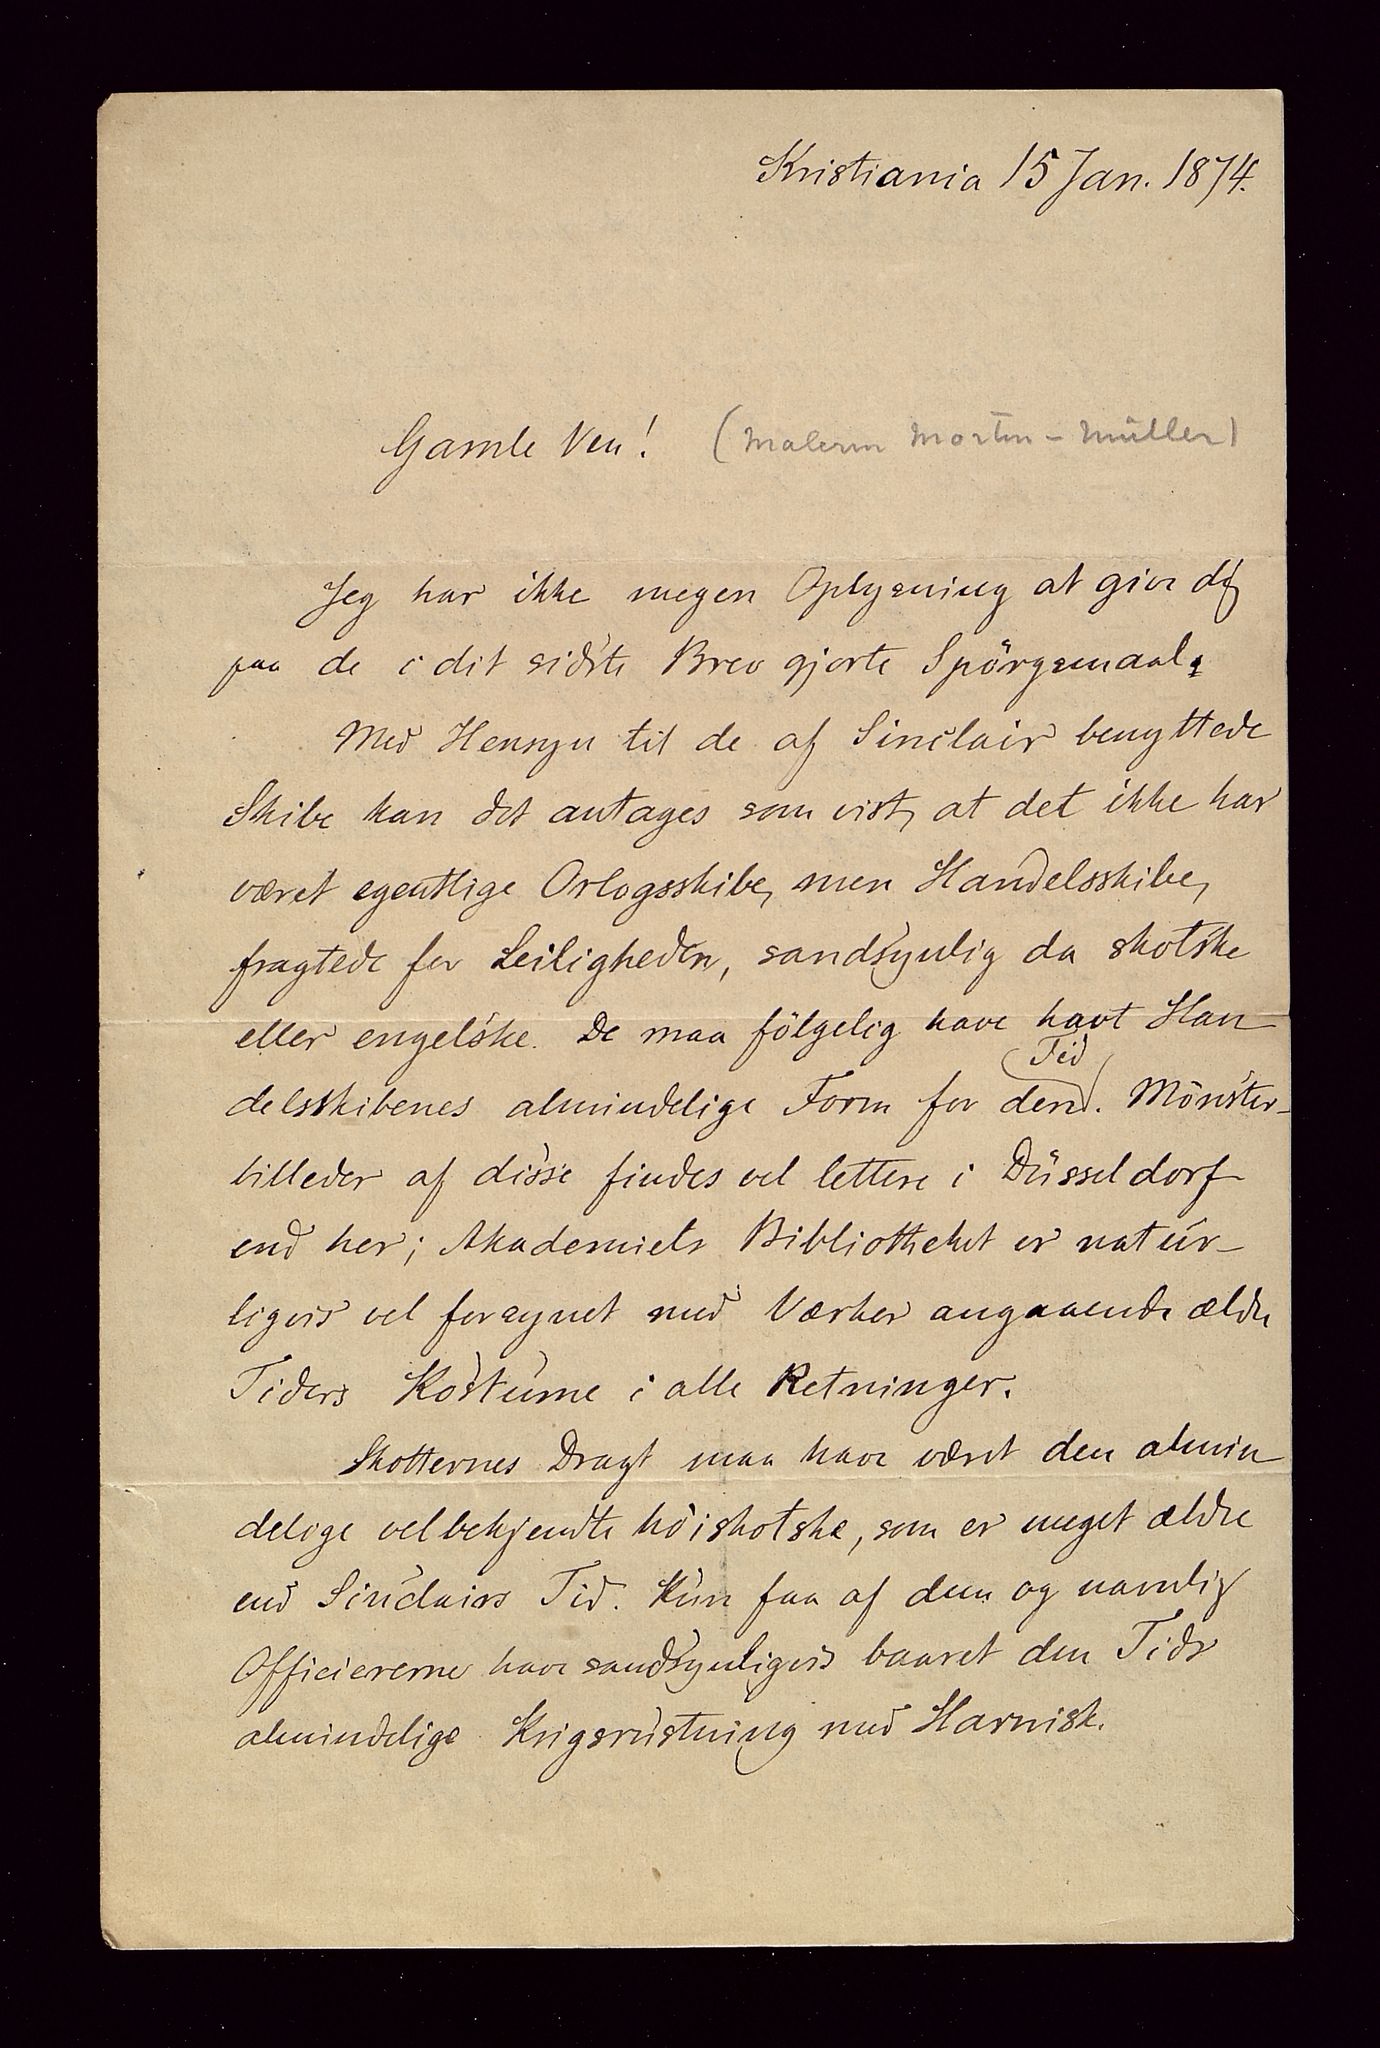 Kristiania 15 Jan. 1874.
Gamle Ven! (Maleren Morten-Müller)
Jeg har ikke megen Oplysning at give dig
paa de i dit sidste Brev gjorte Spörgsmaal.
Med Hensyn til de af Sinclair benyttede
Skibe kan det antages som vist, at det ikke har
været egentlige Orlogsskibe, men Handelsskibe,
fragtede for Leiligheden, sandsynlig da skotske
eller engelske. De maa fölgelig have havt Han
delsskibenes almindelige Form for den Tid. Mönster-
billeder af disse findes vel lettere i Düsseldorf
end her; Akademiets Bibliotheket er natur-
ligvis vel forsynet med Værker angaaende ældre
Tiders Kostume i alle Retninger.
Skotternes Dragt maa have været den almin
delige velbekjendte höiskotske, som er meget ældre
end Sinclairs Tid. Kun faa af dem og navnlig
Officiererne have sandsynligvis baaret den Tids
almindelige Krigsrustning med Harnisk.